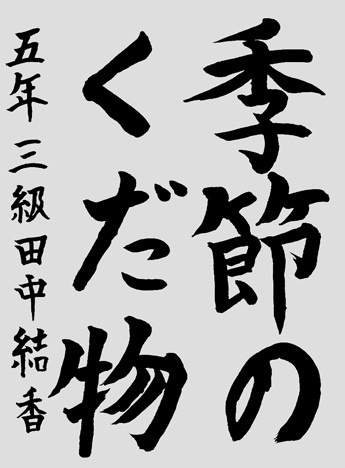 季節の
くだ物
五年三級田中結香